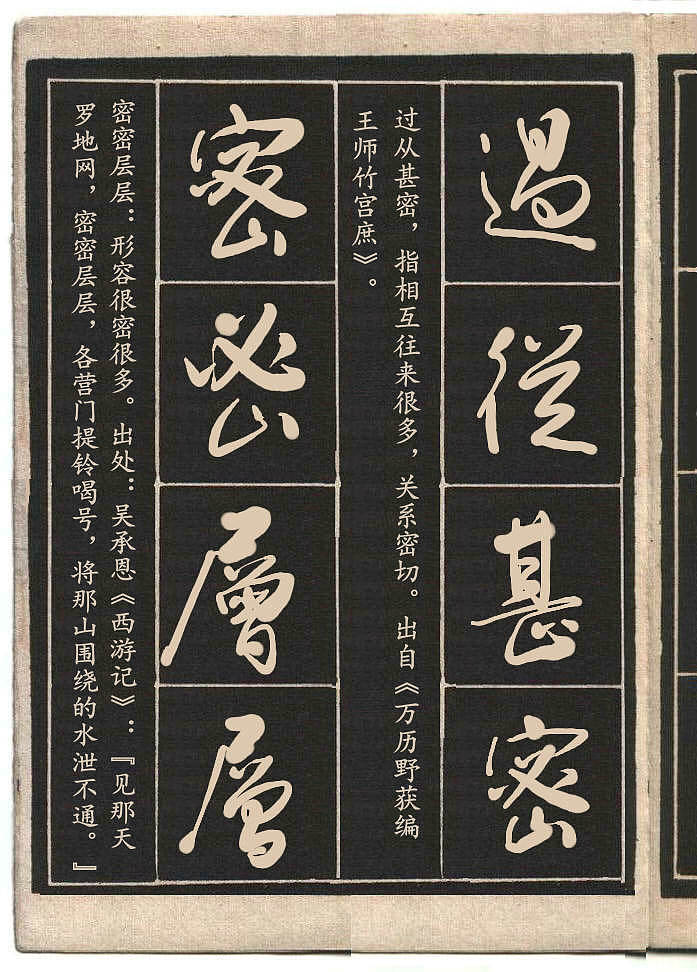 過從甚密
过从甚密，指相互往来很多，关系密切。出自《万历野获编
王师竹宫庶》。
密密層層
密密层层：形容很密很多。出处：吴承恩《西游记》：『见那天
罗地网，密密层层，各营门提铃喝号，将那山围绕的水泄不通。』